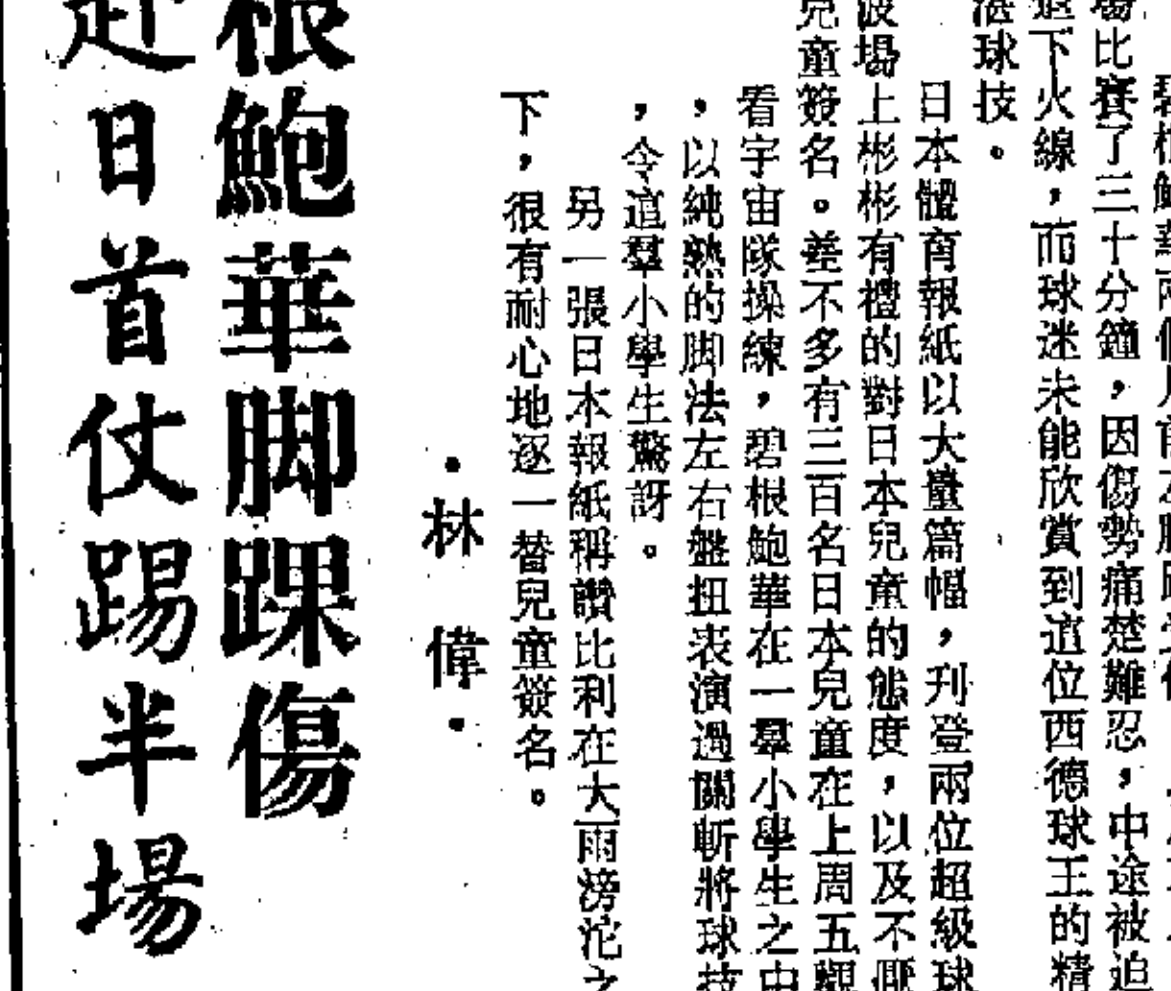 場比賽了三十分鐘，因傷勢痛楚難忍，中途被迫
退下火線，而球迷未能欣賞到這位西德球王的精
湛球技。
日本體育報紙以大量篇幅，刊登兩位超級球
波場上彬彬有禮的對日本兒童的態度，以及不厭
兒童簽名。差不多有三百名日本兒童在上周五觀
看宇宙隊操練，碧根鮑華在一羣小學生之中
，以純熟的脚法左右盤扭表演過關斬將球技
，令這羣小學生驚訝。
另一張日本報紙稱讚比利在大雨滂沱之
下，很有耐心地逐一替兒童簽名。
・林偉・
根鮑華脚踝傷
赴日首仗踢半場